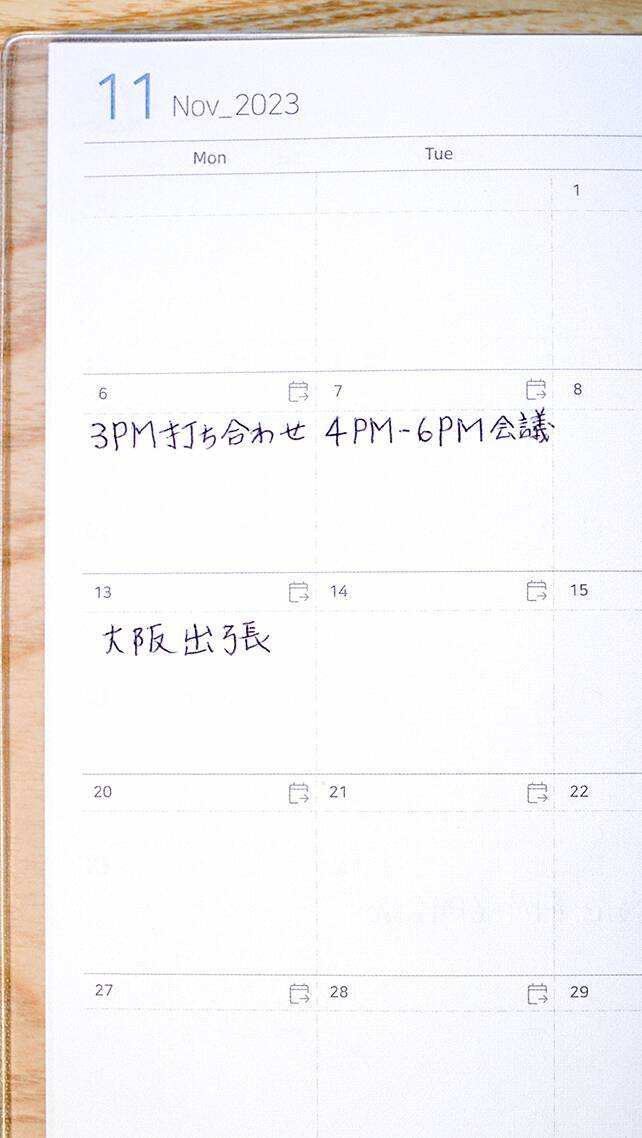 11 Nov_2023
Mon Tue
1
6 7 8
3PM打ち合わせ 4PM-6PM会議
13 14 15
大阪出張
20 21 22
27 28 29